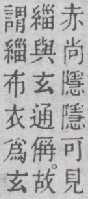 赤尚隱隱可見
緇與玄通偁。故
謂緇布衣爲玄